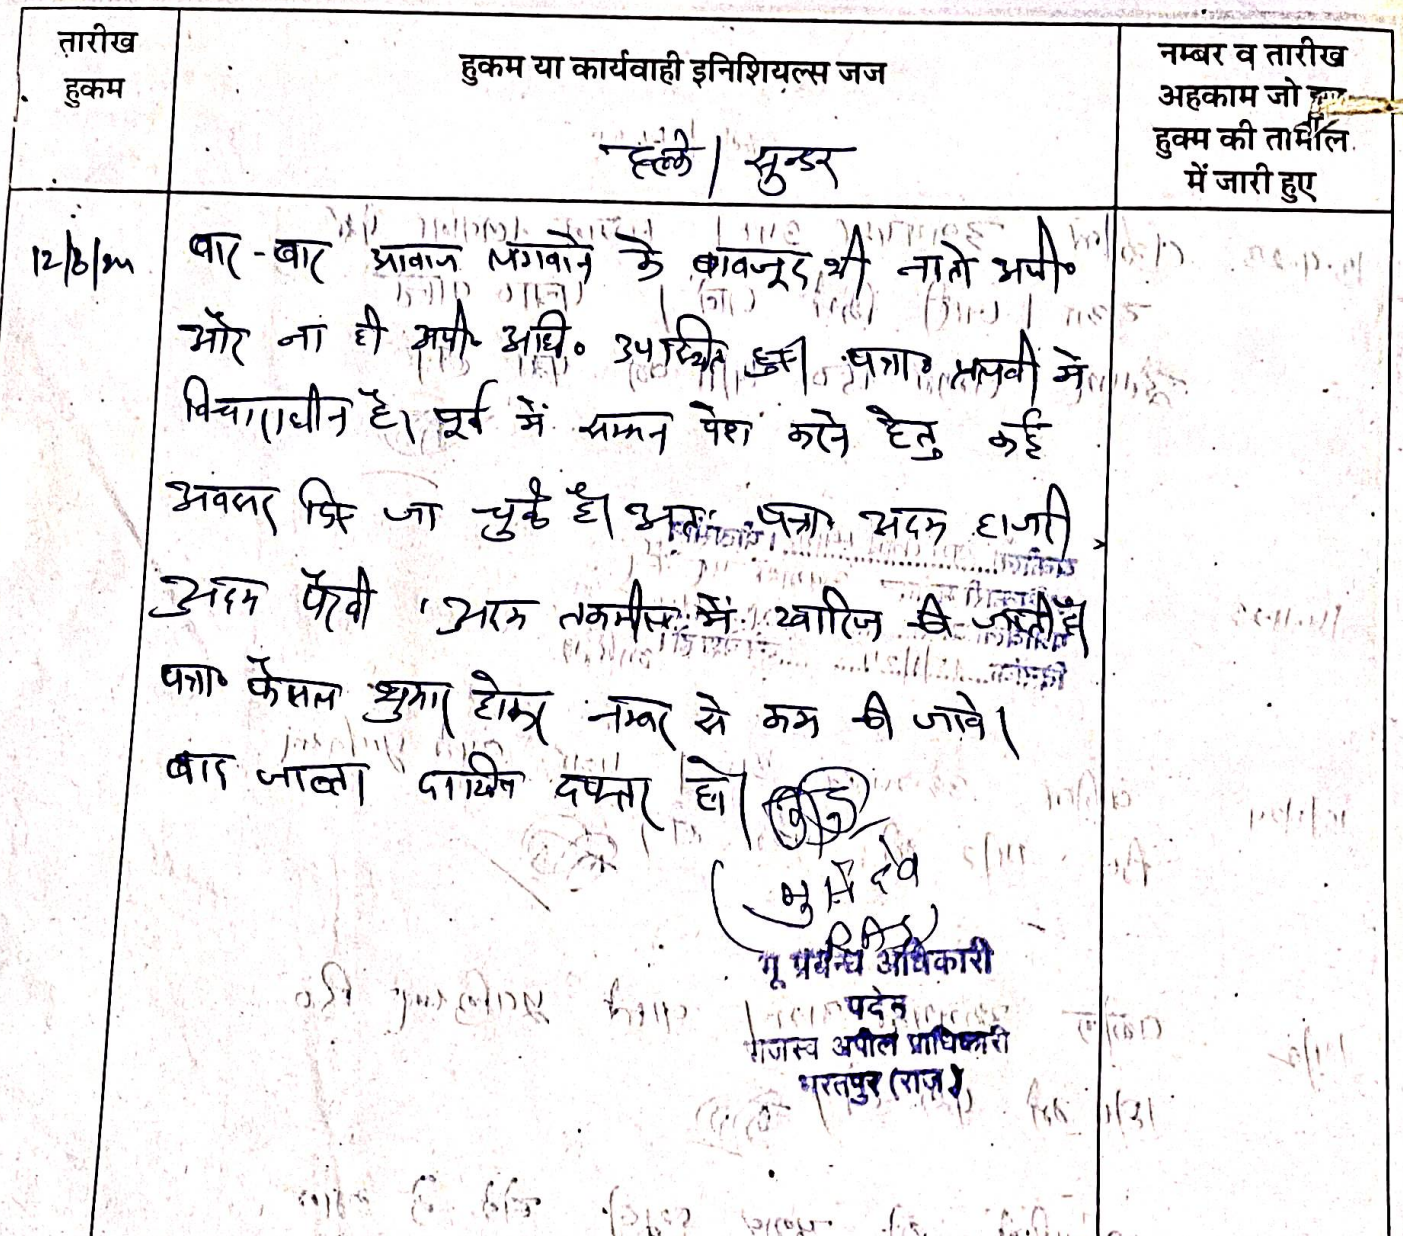 तारीख
हुकम
हुकम या कार्यवाही इनिशियल्स जज
नम्बर व तारीख
अहकाम जो
हुक्म की तामील
में जारी हुए
हल्के / सुन्दर
12/8/24
बार-बार आवाज लगवाने के बावजूद भी ना तो अपी०
और ना ही अपी० अधि० उपस्थित हुए। पत्रा० तलवी में
विचाराधीन है। पूर्व में सम्मन पेश करने हेतु कई
अवसर दिए जा चुके है। अतः पत्रा० अदम हाजरी,
अदम पैरवी, अदम तकमील में खारिज की जाती है।
पत्रा० फैसल शुमार होकर नम्बर से कम की जावे।
बाद जाब्ता दाखिल दफ्तर हो।
भू प्रबन्ध अधिकारी
पदेन
राजस्व अपील प्राधिकारी
भरतपुर (राज०)